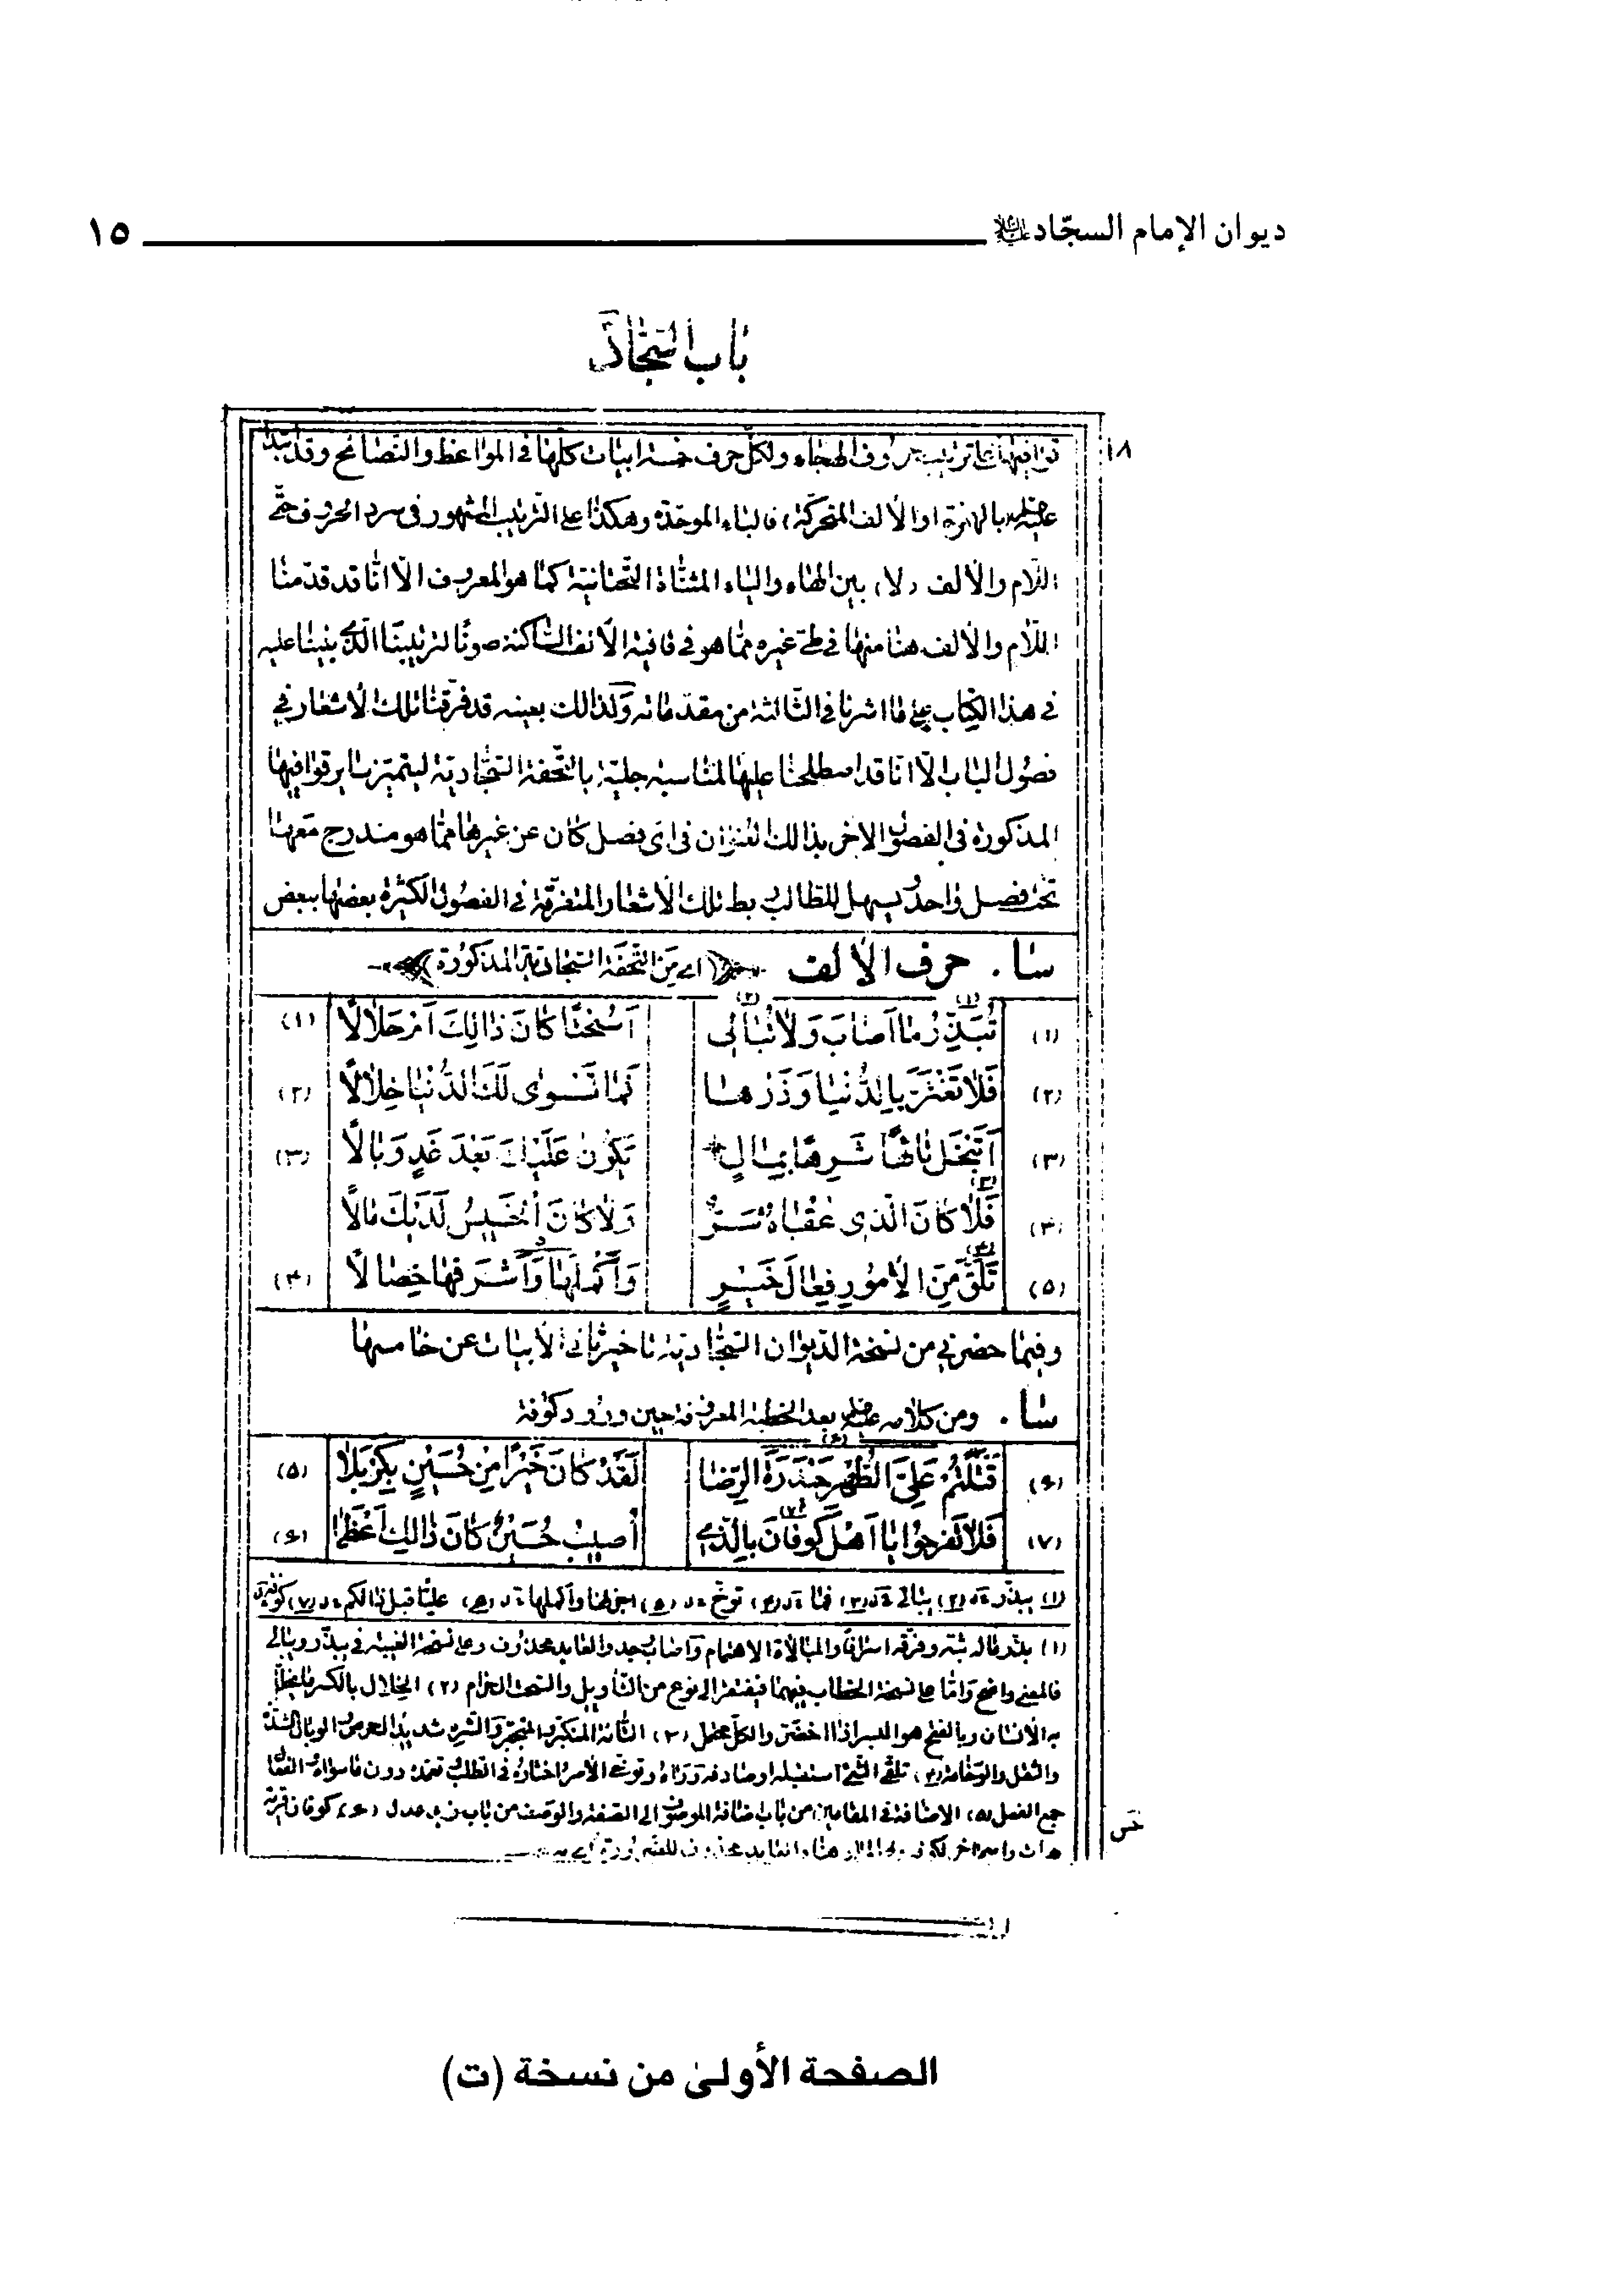 ديوان الإمام السجّاد عليه السلام ١٥
باب السجّاد
١٨
قوافيها على ترتيب حروف الهجاء ولكلّ حرف خمسة ابيات كلها في المواعظ والنصائح وقد
عليه بالهمزة (او الألف المتحركة) فالباء الموحّدة وهكذا على الترتيب المشهور في سرد الحروف حتّى
اللّام والألف (لا) بين الهاء والياء المثنّاة التّحتانية كما هو المعروف الّا انّا قد قدّمنا
اللّام والألف هنا منها في طيّ غيره ممّا هو في قافية الألف السّاكنة صونًا لترتيبنا الّذي بنينا عليه
في هذا الكتاب على ما اشرنا في الثّالثة من مقدّماته وكذالك بعينه قد فرّقنا تلك الأشعار في
فصول الباب الّا انّا قد اصطلحنا عليها لمناسبة جليّة بالتّحفة السّجّاديّة ليتميّز ساير قوافيها
المذكورة في الفصول الاخر بذالك العنوان في اي فصل كان عن غيرها ممّا هو مندرج معها
تحت فصل واحد يسهل للطّالب ربط تلك الأشعار المتفرّقة في الفصول الكثيرة بعضها ببعض
سا . حرف الألف (اي من التّحفة السّجّادية المذكورة)
(١) تُبَذِّرُ مَا اَصَابَ وَلَا تُبَالِي (٢) اَسُحْتًا كَانَ ذَالِكَ اَمْ حَلَالًا (١)
(٢) فَلَا تَغْتَرَّ بِالدُّنْيَا وَذَرْهَا فَمَا تَسْوٰى لَكَ الدُّنْيَا خِلَالًا (٢)
(٣) اَتَبْخَلُ تَائِهًا شَرِهًا بِمَالٍ يَكُونُ عَلَيْكَ بَعْدَ غَدٍ وَبَالًا (٣)
(٤) فَلَا كَانَ الَّذِي عُقْبَاهُ شَرٌّ وَلَا كَانَ الْخَسِيسُ لَدَيْكَ مَالًا
(٥) تَلَقَّ مِنَ الْأُمُورِ فِعَالَ خَيْرٍ وَاَكْمَلَهَا وَاَشْرَفَهَا خِصَالًا (٤)
وفيما حضرني من نسخة الدّيوان السّجّاديّة تاخير ثاني الأبيات عن خامسها
سا . ومن كلامه عليه بعد الخطبة المعروفة حين ورود كوفة
(٦) قَتَلْتُمْ عَلِيَّ الطُّهْرِ حَيْدَرَةَ الرِّضَا لَقَدْ كَانَ خَيْرًا مِنْ حُسَيْنٍ بِكَرْبَلَا (٥)
(٧) فَلَا تَفْرَحُوا يَا اَهْلَ كُوفَانَ بِالَّذِي اُصِيبَ حُسَيْنٌ كَانَ ذَالِكَ اَعْظَمَا (٦)
(١) يبذّر (٢) يبالي (٣) فما (٤) توخّ (٥) واكملها (٦) عليًّا قبل ذالكم (٧)
(١) بذّر ماله بثّه وفرّقه اسرافًا والمبالاة الاهتمام واصاب وجد والعايد محذوف وعلى نسخة الغيبة في يبذّر ويبالي
فالمعنى واضح وامّا على نسخة الخطاب فيهما فيفتقر الى نوع من التّأويل والسّحت الحرام (٢) الخلال بالكسر ما يتخلّل
به الأنسان وبالفتح هو البسر اذا اخضرّ والكلّ محتمل (٣) التّائه المتكبّر المتجبّر والشّره شديد الحرص والوبال الشدّة
والثّقل والوخامة (٤) تلقّى الشّيء استقبله او صادفه وتوخّى الأمر اختاره في الطّلب تعمّده دون ما سواه الفعال
جمع الفعل (٥) الاضافة في المقامين من باب اضافة الموصوف الى الصّفة والوصف من باب زيد عدل (٦) كوفان قرية
الصفحة الأولىٰ من نسخة (ت)